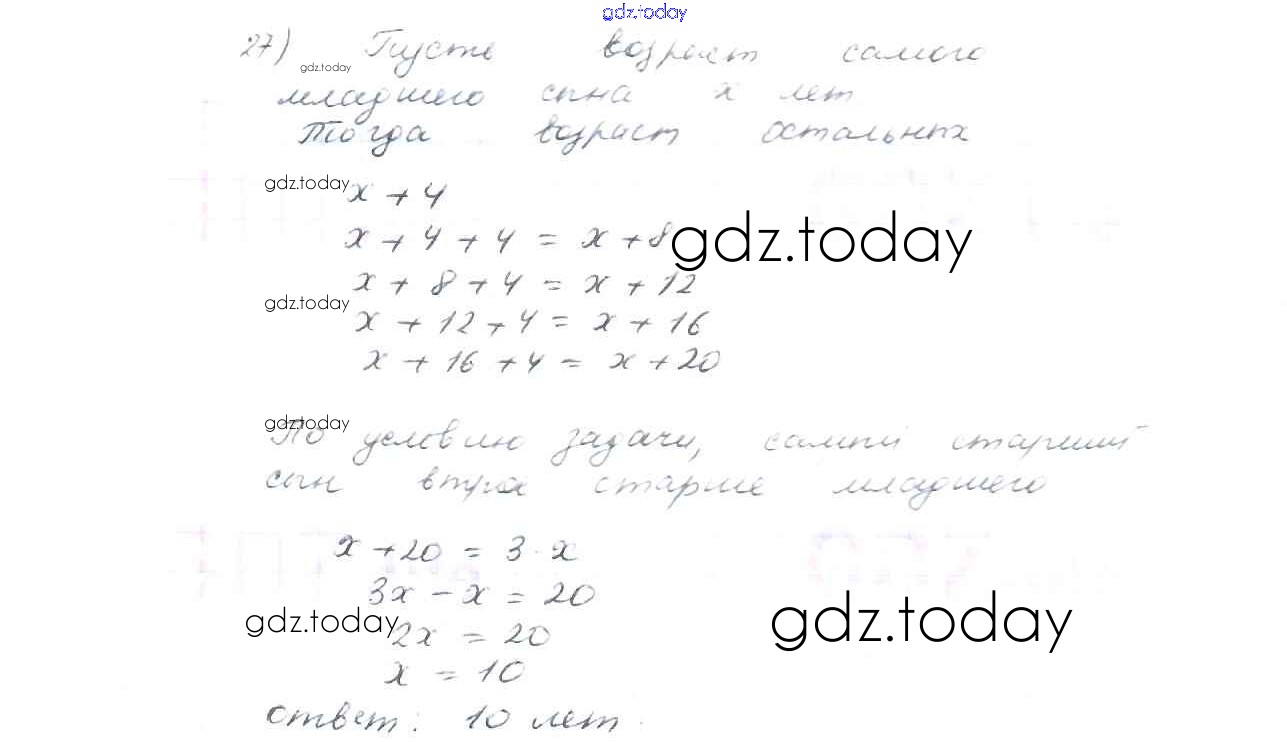 gdz.today
27) Пусть возраст самого
gdz.today
младшего сына x лет
Тогда возраст остальных
gdz.today x + 4
x + 4 + 4 = x + 8 gdz.today
x + 8 + 4 = x + 12
gdz.today
x + 12 + 4 = x + 16
x + 16 + 4 = x + 20
gdz.today
По условию задачи, самый старший
сын втрое старше младшего
x + 20 = 3 · x
3x - x = 20
gdz.today 2x = 20 gdz.today
x = 10
Ответ: 10 лет.